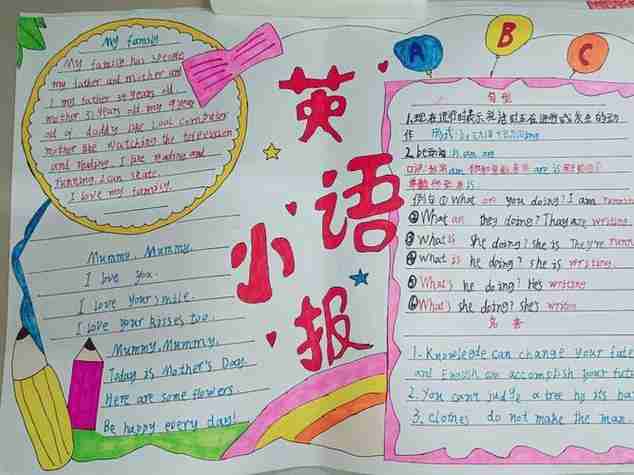 My family
My family has 3 people
my father and mother and
I my father 34 years old
mother 31 years old my 9 year
old of daddy like look computer
mother like watching the television
and reading. I like reading and
running. I can skate.
I love my family
Mummy, Mummy,
I love you.
I love your smile.
I love your kisses too.
Mummy, Mummy,
Today is Mother's Day
Here are some flowers
Be happy every day!
英语小报
A B C
句型
1.现在进行时表示说话时正在进行或发生的动
作 形式: be
2. be动词: is am are
例句 ① What are you doing? I am
② What are they doing? They are writing
③ What is she doing? she is They're
④ What is he doing? she is writing
⑤ What's he doing? He's writing
⑥ What's she doing? she's
名言
1. Knowledge can change your fate
and English can accomplish your
2. You can't judge a tree by its
3. Clothes do not make the man.